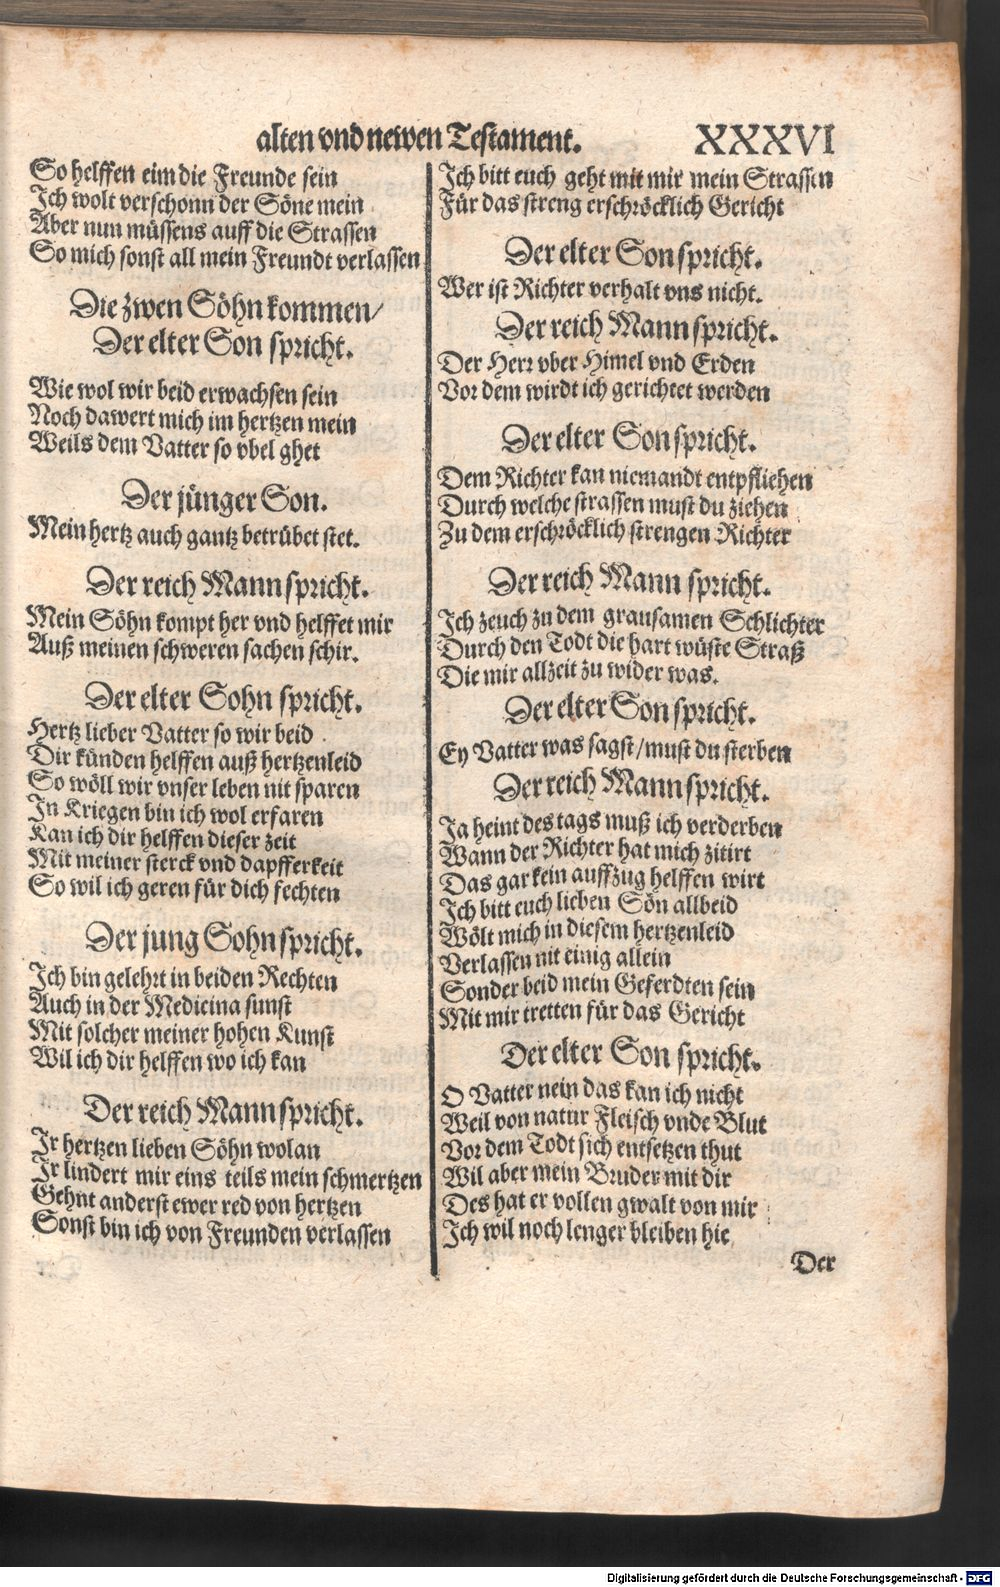 alten vnd newen Testament. XXXVI
So helffen eim die Freunde sein
Ich wolt verschonn der Söne mein
Aber nun müssens auff die Strassen
So mich sonst all mein Freundt verlassen
Die zwen Söhn kommen/
Der elter Son spricht.
Wie wol wir beid erwachsen sein
Noch dawert mich im hertzen mein
Weils dem Vatter so vbel ghet
Der jünger Son.
Mein hertz auch gantz betrübet stet.
Der reich Mann spricht.
Mein Söhn kompt her vnd helffet mir
Auß meinen schweren sachen schir.
Der elter Sohn spricht.
Hertz lieber Vatter so wir beid
Dir künden helffen auß hertzenleid
So wöll wir vnser leben nit sparen
In Kriegen bin ich wol erfaren
Kan ich dir helffen dieser zeit
Mit meiner sterck vnd dapfferkeit
So wil ich geren für dich fechten
Der jung Sohn spricht.
Ich bin gelehrt in beiden Rechten
Auch in der Medicina sunst
Mit solcher meiner hohen Kunst
Wil ich dir helffen wo ich kan
Der reich Mann spricht.
Ir hertzen lieben Söhn wolan
Ir lindert mir eins teils mein schmertzen
Gehnt anderst ewer red von hertzen
Sonst bin ich von Freunden verlassen
Ich bitt euch geht mit mir mein Strassen
Für das streng erschröcklich Gericht
Der elter Son spricht.
Wer ist Richter verhalt vns nicht.
Der reich Mann spricht.
Der Herr vber Himel vnd Erden
Vor dem wirdt ich gerichtet werden
Der elter Son spricht.
Dem Richter kan niemandt entpfliehen
Durch welche strassen must du ziehen
Zu dem erschröcklich strengen Richter
Der reich Mann spricht.
Ich zeuch zu dem grausamen Schlichter
Durch den Todt die hart wüste Straß
Die mir allzeit zu wider was.
Der elter Son spricht.
Ey Vatter was sagst/must du sterben
Der reich Mann spricht.
Ja heint des tags muß ich verderben
Wann der Richter hat mich zitirt
Das gar kein auffzug helffen wirt
Ich bitt euch lieben Sön allbeid
Wölt mich in diesem hertzenleid
Verlassen nit einig allein
Sonder beid mein Geferdten sein
Mit mir tretten für das Gericht
Der elter Son spricht.
O Vatter nein das kan ich nicht
Weil von natur Fleisch vnde Blut
Vor dem Todt sich entsetzen thut
Wil aber mein Bruder mit dir
Des hat er vollen gwalt von mir
Ich wil noch lenger bleiben hie
Der
Digitalisierung gefördert durch die Deutsche Forschungsgemeinschaft - DFG